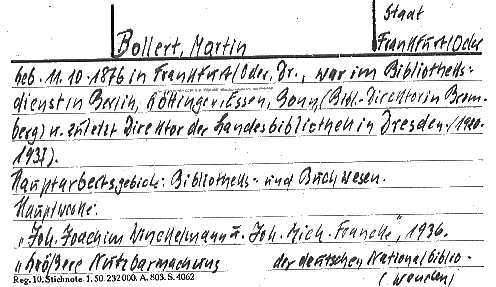 Stadt
Bollert, Martin
Frankfurt/Oder
geb. 11.10.1876 in Frankfurt/Oder, Dr., war im Bibliotheks-
dienst in Berlin, Göttingen, Essen, Bonn, (Bibl.-Direktor in Brom-
berg) u. zuletzt Direktor der Landesbibliothek in Dresden. (1920-
1937).
Hauptarbeitsgebiet: Bibliotheks- und Buchwesen.
Hauptwerke:
„Joh. Joachim Winckelmann u. Joh. Mich. Francke", 1936.
„Größere Nutzbarmachung der deutschen Nationalbiblio-
Reg. 10. Stichnote 1. 50. 232000. A. 803. S. 4062
(wenden)